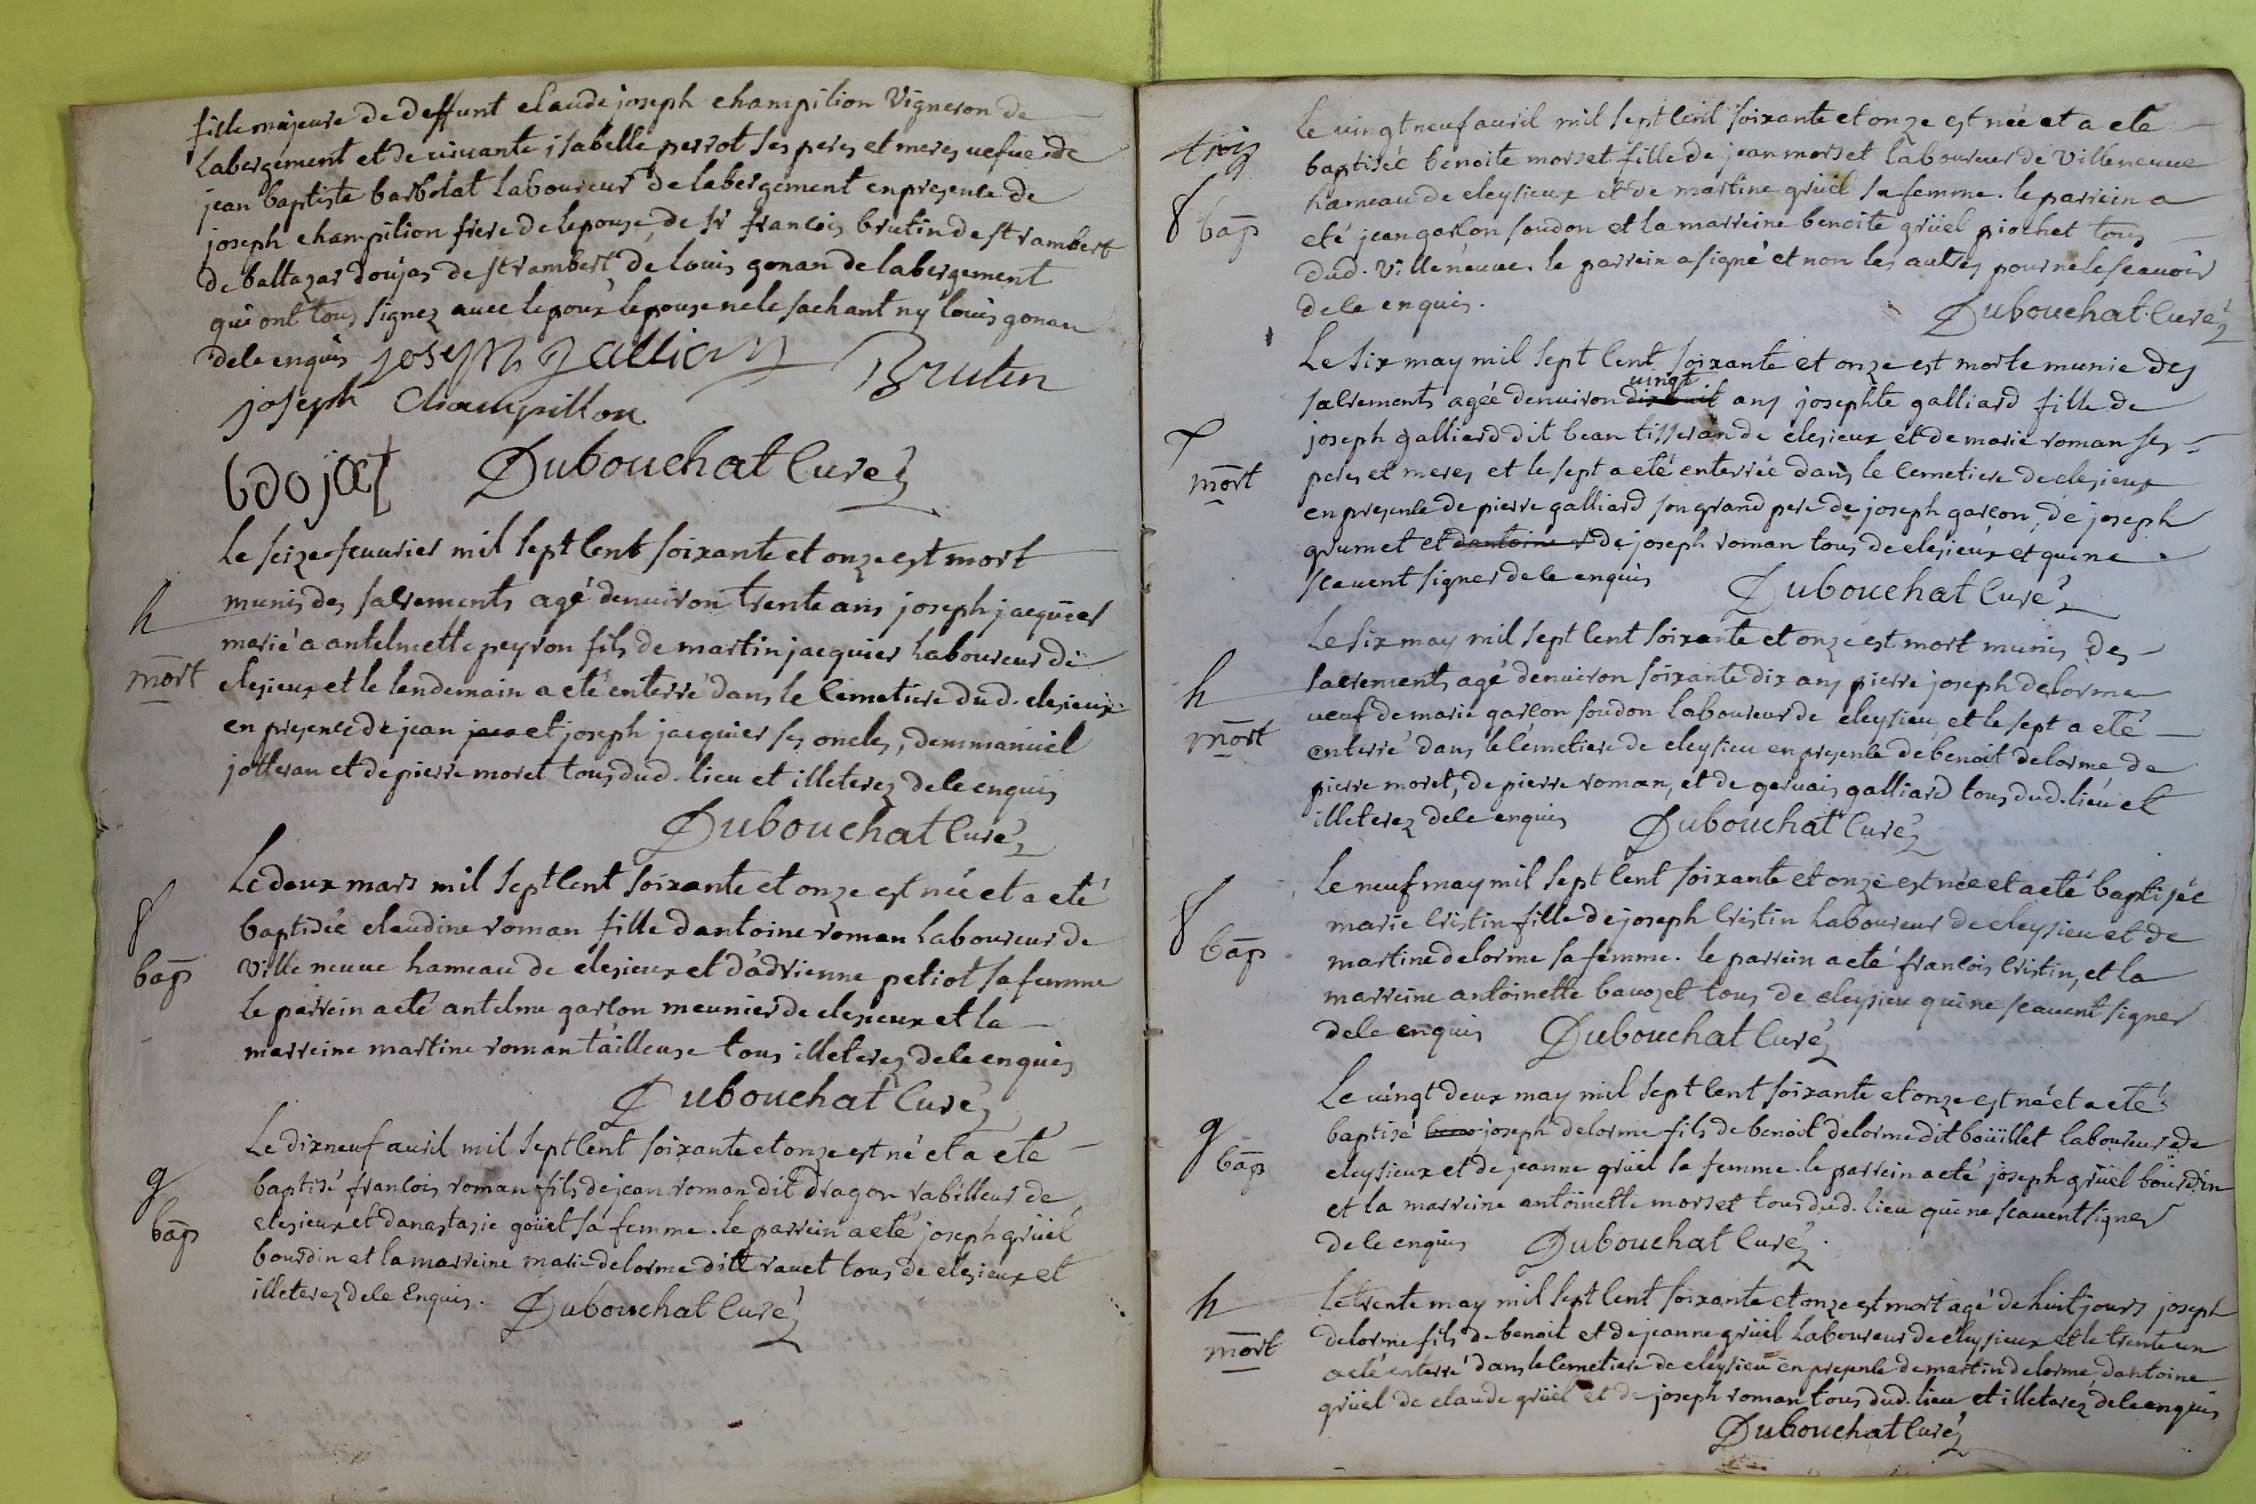 fille majeure de deffunt claude joseph champilion Vigneron de
Labergement et de vivante isabelle perrot ses peres et meres vefue de
jean baptiste barbolat laboureur de labergement en presence de
joseph champilion frere de lepouse, de sr francois brutin de st rambert
de baltazar doujas de st rambert de louis gonan de labergement
qui ont tous signez avec lepoux lepouse ne le sachant ny louis gonan
de le enquis joseph Jallion Brutin
joseph Champillon
Dubouchat Curé
Le seize feuurier mil sept cent soixante et onze est mort
h
munis des sacrements agé denuiron trente ans joseph jacquier
marié a antelmette peyron fils de martin jacquier laboureur de
mort
clesieux et le lendemain a eté enterré dans le cemetiere dud. clesieux
en presence de jean et joseph jacquier ses oncles, demmanuel
jotteran et de pierre moret tous dud. lieu et illeterez de le enquis
Dubouchat Curé
Le deux mars mil sept cent soixante et onze est née et a eté
f
baptisée claudine roman fille dantoine roman laboureur de
bap
Ville neuue hameau de clesieux et d'adrienne petiot sa femme
le parrein a eté antelme garcon meunier de clesieux et la
marreine martine roman tailleuse tous illeterez de le enquis
Dubouchat Curé
Le dixneuf avril mil sept cent soixante et onze est né et a eté
g
baptisé francois roman fils de jean roman dit dragon rabilleur de
clesieux et danastasie goüet sa femme. le parrein a eté joseph grüel
bap
bourdin et la marreine marie delorme ditte rauet tous de clesieux et
illeterez de le Enquis. Dubouchat Curé
Le vingt neuf auril mil sept cent soixante et onze est née et a eté
trois
baptisée benoite morset fille de jean morset laboureur de Villeneuue
f
hameau de cleysieux et de martine grüel sa femme. le parrein a
bap
eté jean garcon soudon et la marreine benoite grüel piochet tous
dud. Villeneuue. le parrein a signé et non les autres pour ne le scauoir
de le enquis.
Dubouchat Curé
Le six may mil sept cent soixante et onze est morte munie des
vingt
sacrements agée denuiron dix huit ans josephte galliard fille de
joseph galliard dit bean tisseran de clesieux et de marie roman ses
mort
peres et meres et le sept a eté enterrée dans le cemetiere de clesieux
en presence de pierre galliard son grand pere de joseph garcon, de joseph
grumet et dantoine r de joseph roman tous de clesieux et qui ne
scauent signer de le enquis Dubouchat Curé
Le six may mil sept cent soixante et onze est mort munis des
h
sacrements agé denuiron soixante dix ans pierre joseph delorme
ueuf de marie garcon soudon laboureur de cleysieu et le sept a eté
mort
enterré dans le cémetiere de cleysieu en presence de benoit delorme de
pierre moret, de pierre roman, et de geruais galliard tous dud. lieu et
illeterez de le enquis Dubouchat Curé
Le neuf may mil sept cent soixante et onze est née et a eté baptisée
f
marie cristin fille de joseph cristin laboureur de cleysieu et de
bap
martine delorme sa femme. le parrein a eté francois cristin, et la
marreine antoinette bauozet tous de cleysieu qui ne scauent signer
de le enquis Dubouchat Curé
Le vingt deux may mil sept cent soixante et onze est né et a eté
g
baptisé beno joseph delorme fils de benoit delorme dit boüillet laboureur de
bap
cleysieux et de jeanne grüel sa femme. le parrein a eté joseph grüel bourdin
et la marreine antoinette morset tous dud. lieu qui ne scauent signer
de le enquis Dubouchat Curé.
h
Le trente may mil sept cent soixante et onze est mort agé de huit jours joseph
delorme fils de benoit et de jeanne grüel laboureur de cleysieux et le trente un
mort
a eté enterré dans le cemetiere de cleysieu en presence de martin delorme, dantoine
grüel de claude grüel et de joseph roman tous dud. lieu et illeterez de le enquis
Dubouchat Curé